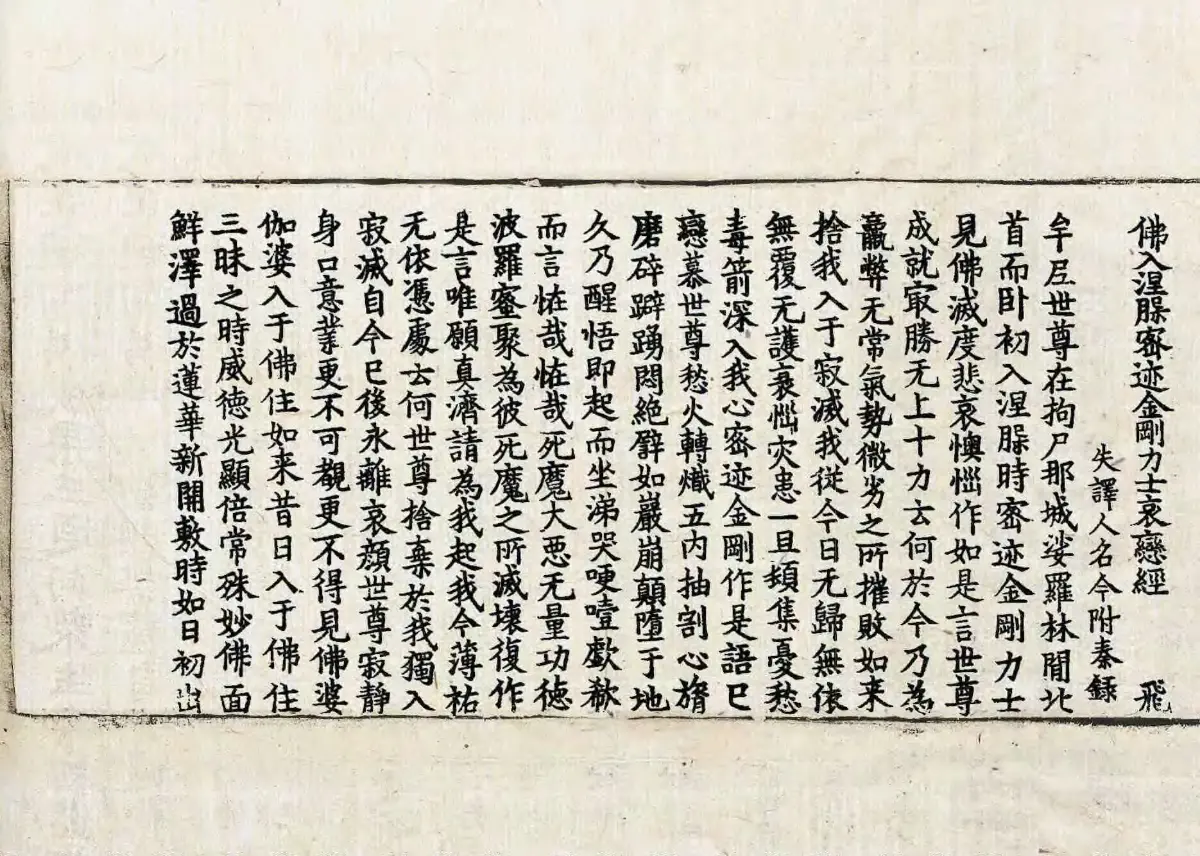 佛入涅䏶密迹金剛力士哀戀經 飛
失譯人名今附秦錄
牟尼世尊在拘尸那城娑羅林間北
首而卧初入涅䏶時密迹金剛力士
見佛滅度悲哀懊惱作如是言世尊
成就㝡勝无上十力云何於今乃為
羸弊无常氣勢微劣之所摧敗如来
捨我入于寂滅我從今日无歸無依
無覆无護衰惱灾患一旦頓集憂愁
毒箭深入我心密迹金剛作是語已
戀慕世尊愁火轉熾五内抽割心膂
磨碎躃踴悶絕譬如巖崩顛墮于地
久乃醒悟即起而坐涕哭哽噎歔欷
而言恠哉恠哉死魔大惡无量功德
波羅蜜聚為彼死魔之所滅壞復作
是言唯願真濟請為我起我今薄祐
无依憑處云何世尊捨棄於我獨入
寂滅自今已後永離哀顏世尊寂靜
身口意業更不可覩更不得見佛婆
伽婆入于佛住如来昔日入于佛住
三昧之時威德光顯倍常殊妙佛面
鮮澤過於蓮華新開敷時如日初出